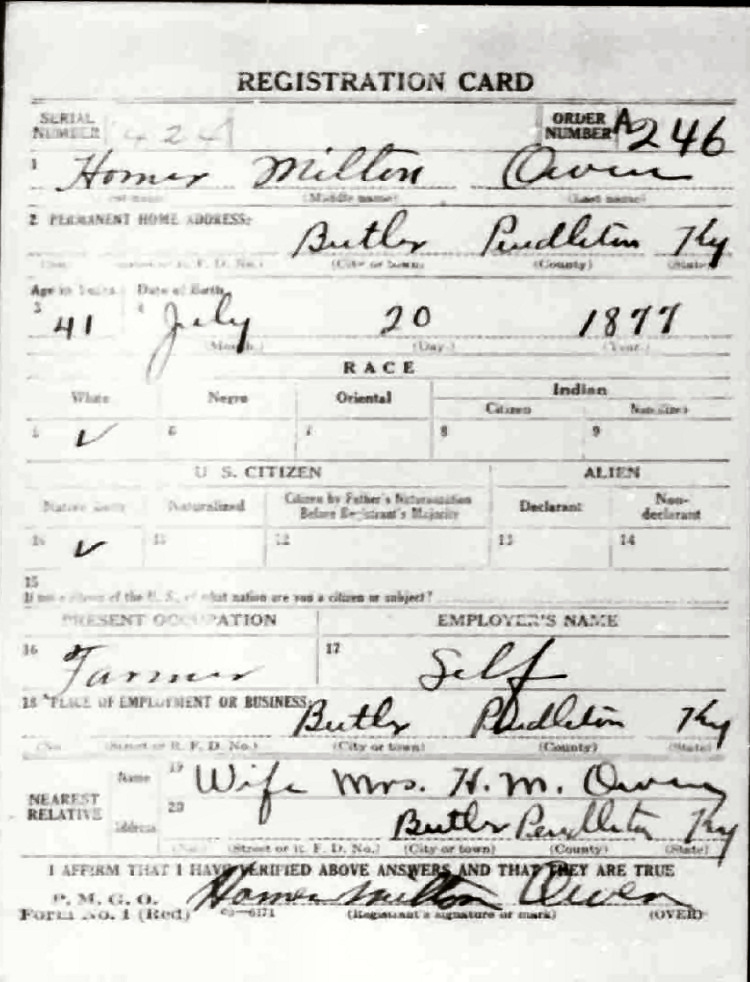 REGISTRATION CARD
SERIAL NUMBER 424 ORDER NUMBER A246
1 Homer Milton Owen
(Middle name) (Last name)
2 PERMANENT HOME ADDRESS:
Butler Pendleton Ky
(No.) (Street or R. F. D. No.) (City or town) (County) (State)
Age in Years Date of Birth
3 41 4 July 20 1877
(Month.) (Day.) (Year.)
RACE
White Negro Oriental Indian
Citizen Noncitizen
5 ✓ 6 7 8 9
U. S. CITIZEN ALIEN
Native Born Naturalized Citizen by Father's Naturalization Before Registrant's Majority Declarant Non-declarant
10 ✓ 11 12 13 14
15
If not a citizen of the U. S., of what nation are you a citizen or subject?
PRESENT OCCUPATION EMPLOYER'S NAME
16 Farmer 17 Self
18 PLACE OF EMPLOYMENT OR BUSINESS:
Butler Pendleton Ky
(No.) (Street or R. F. D. No.) (City or town) (County) (State)
NEAREST RELATIVE
Name 19 Wife Mrs. H. M. Owen
Address 20 Butler Pendleton Ky
(No.) (Street or R. F. D. No.) (City or town) (County) (State)
I AFFIRM THAT I HAVE VERIFIED ABOVE ANSWERS AND THAT THEY ARE TRUE
P. M. G. O.
Form No. 1 (Red) 03—6171 Homer Milton Owen
(Registrant's signature or mark) (OVER)